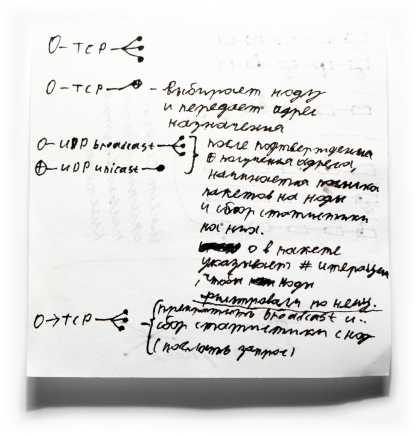 O - TCP
O - TCP - выбирает ноду
и передает адрес
назначения
O - UDP broadcast
после подтверждения
о получении адреса,
⊕ - UDP unicast
начинается посылка
пакетов на ноды
и сбор статистики
на них.
O в пакете
указывает # итерации
, чтобы ноды
фильтровали по нему.
O → TCP
прекратить broadcast и
сбор статистики с нод
(послать запрос)